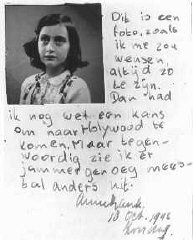 Dit is een
foto, zoals
ik me zou
wensen,
altijd zo
te zijn.
Dan had
ik nog wel een kans
om naar Holywood te
komen. Maar tegen-
woordig zie ik er
jammer genoeg mees-
tal anders uit.
Annefrank.
10 Oct. 1942
Zondag.